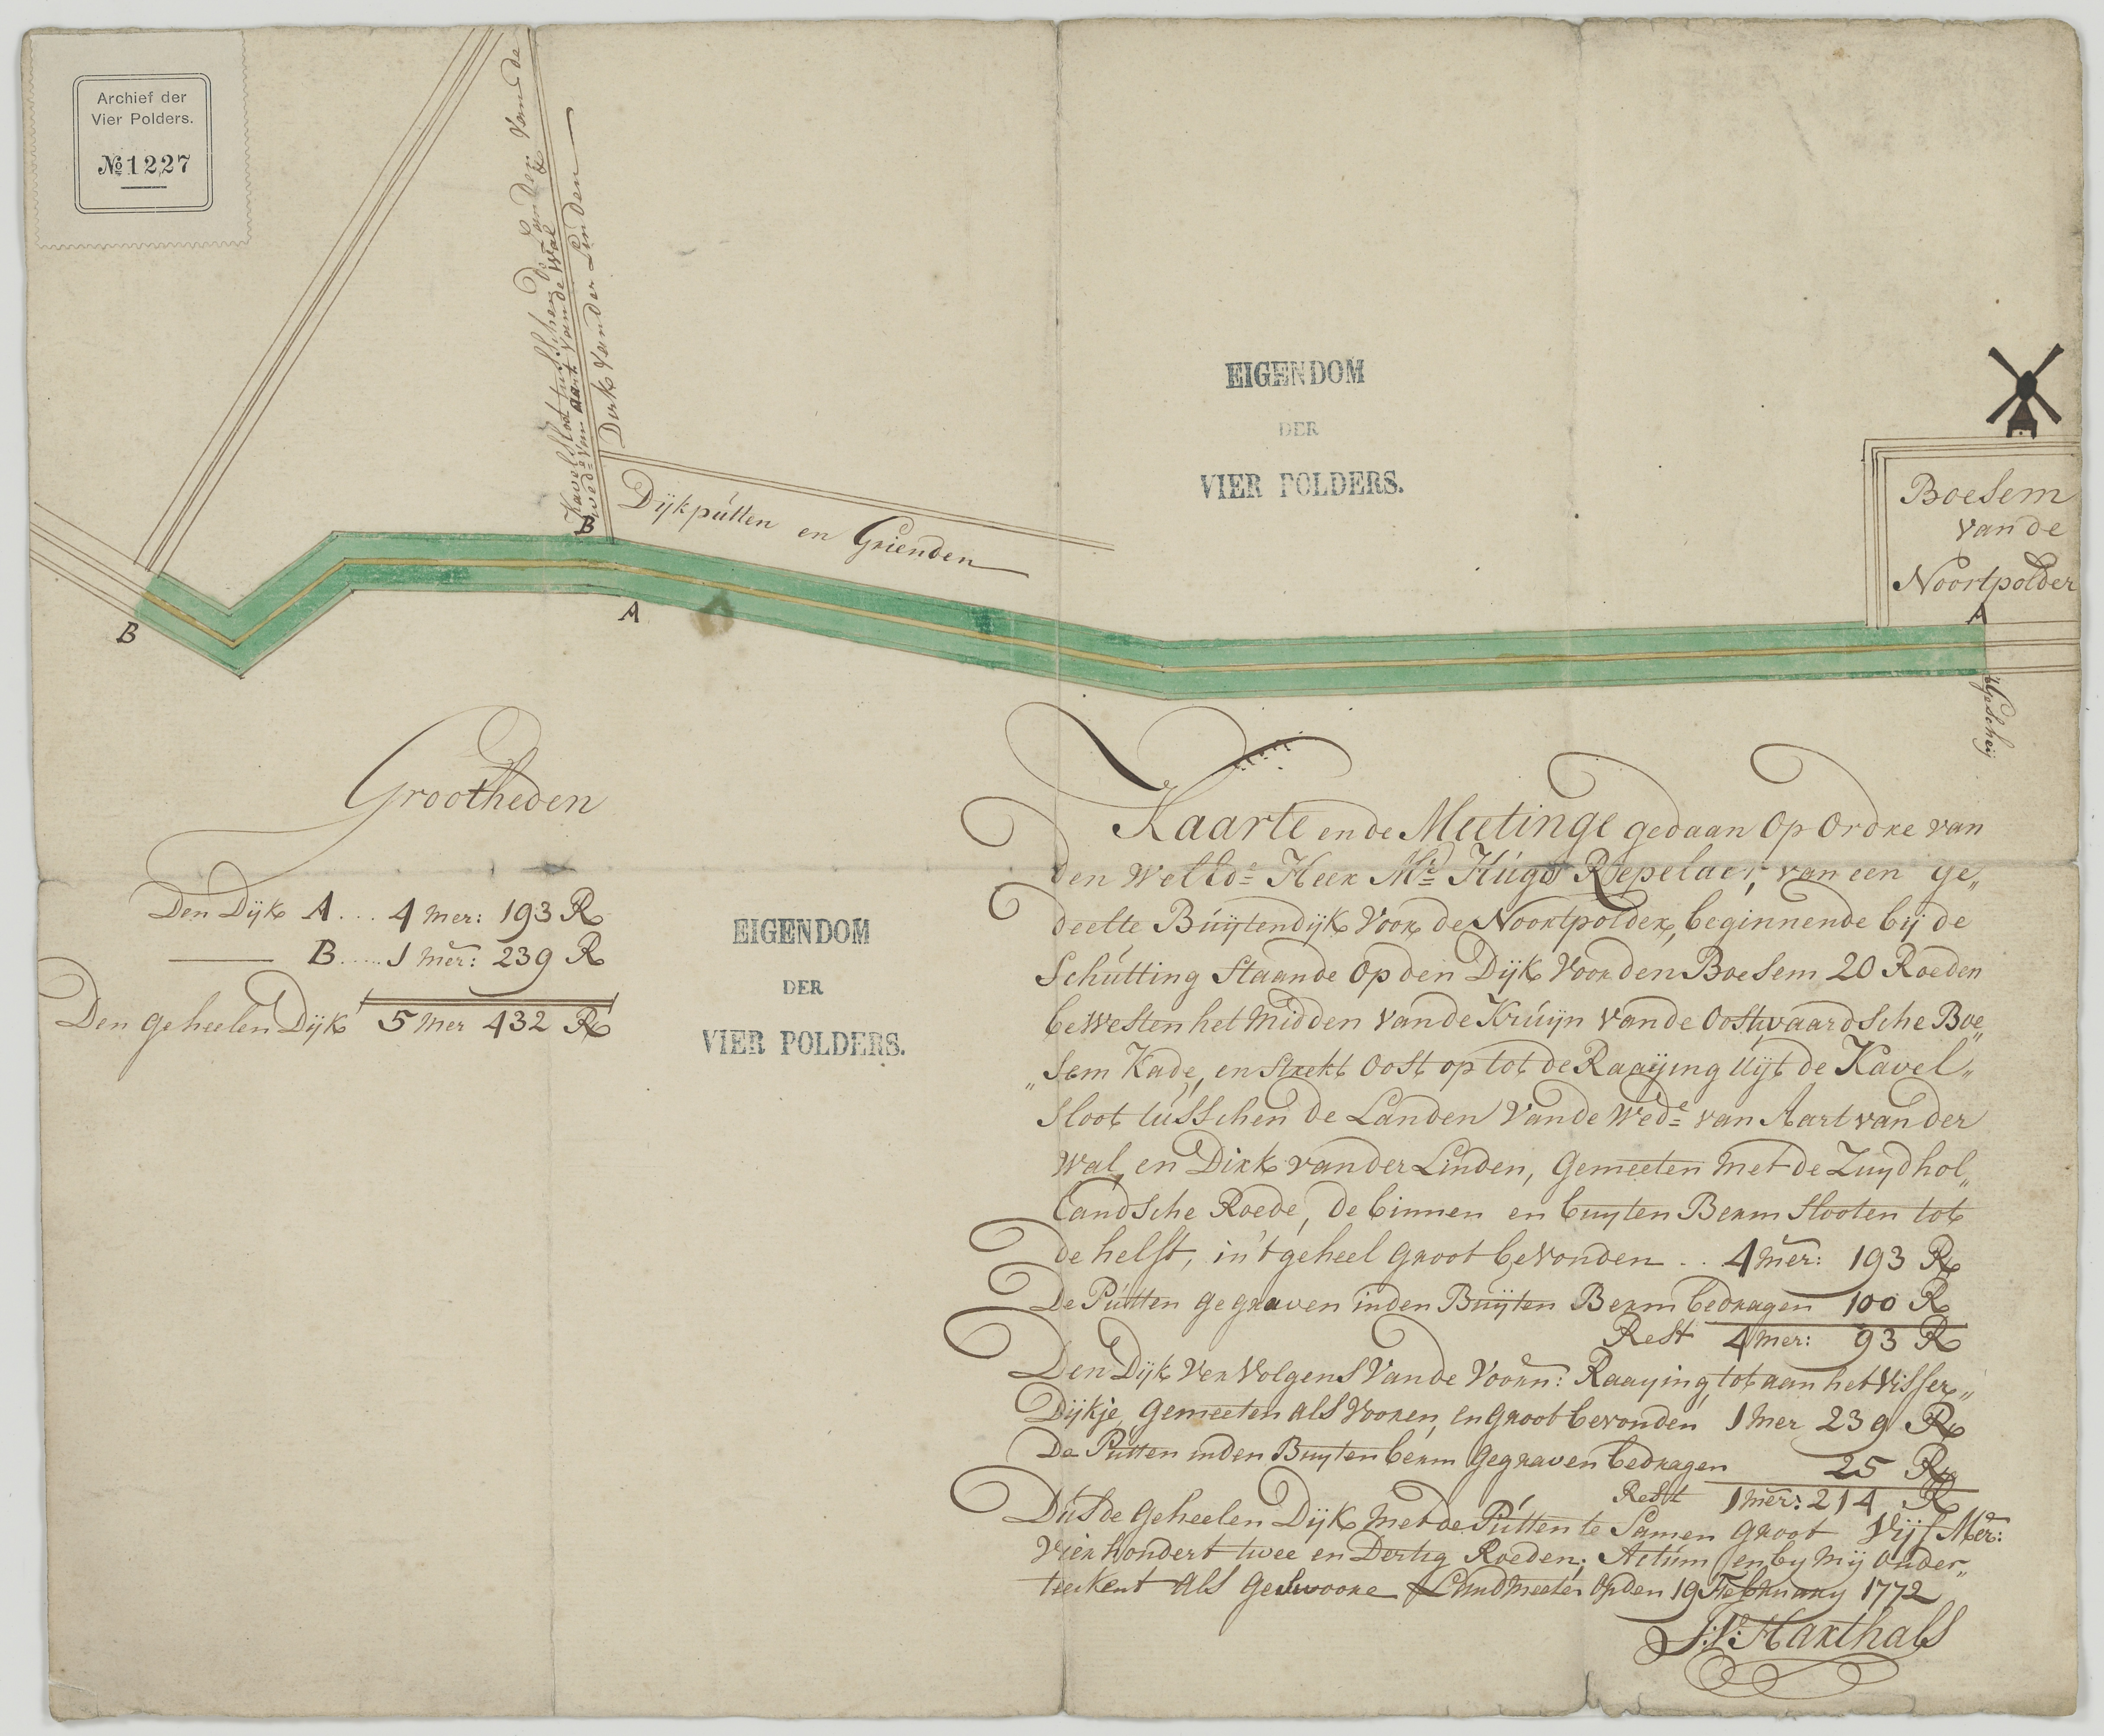 Archief der
Vier Polders.
№ 1227
Kavel Sloot tusschen de Landen van de
Wed.e van aart van de Wal
Dirk van der Linden
Dijkputten en Grienden
EIGENDOM
DER
VIER POLDERS.
Boesem
van de
Noortpolder
B
A
B
A
't Gescheij
Grootheden
Den Dijk A... 4 mer: 193 R
B..... 1 mer: 239 R
Den geheelen Dijk 5 mer 432 R
EIGENDOM
DER
VIER POLDERS.
Kaarte ende Meetinge gedaan Op Ordre van
den WelEd.e Heer Mr. Hugo Repelaer, van een ge„
deelte Buijtendijk Voor de Noortpolder, beginnende bij de
Schutting Staande Op den Dijk Voor den Boesem 20 Roeden
bewesten het Midden van de Kruijn van de Oostwaardsche Boe„
„sem Kade, en Strekt Oost op tot de Raaijing Uijt de Kavel„
Sloot tusschen de Landen van de Wed.e van Aart van der
Wal, en Dirk van der Linden, Gemeeten met de Zuydhol„
landsche Roede, de binnen en buyten Berm Slooten tot
de helft, in't geheel groot bevonden .. 4 mer: 193 R
De Putten gegraven in den Buijten Berm bedragen 100 R
Rest 4 mer: 93 R
Den Dijk Vervolgens Van de Voorn: Raaying, tot aan het Visser„
Dijkje, gemeeten als Vooren, en groot bevonden 1 mer 239 R
De Putten in den Buyten berm gegraven bedragen 25 R
Rest 1 mer: 214 R
Dus de geheelen Dijk met de Putten te Samen groot Vijf Mer:
Vier hondert twee en Dertig Roeden; Actum en by mij onder„
teekent als geswoore Landmeeter op den 19 February 1772
Harthals